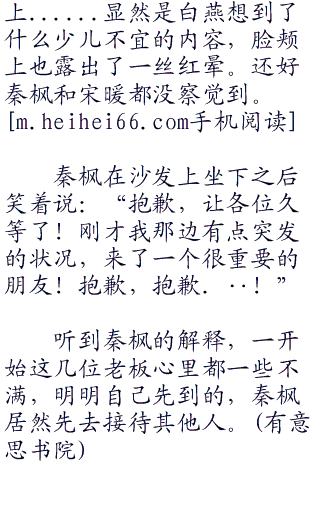 上......显然是白燕想到了
什么少儿不宜的内容，脸颊
上也露出了一丝红晕。还好
秦枫和宋暖都没察觉到。
[m.heihei66.com手机阅读]
秦枫在沙发上坐下之后
笑着说：“抱歉，让各位久
等了！刚才我那边有点突发
的状况，来了一个很重要的
朋友！抱歉，抱歉．··！”
听到秦枫的解释，一开
始这几位老板心里都一些不
满，明明自己先到的，秦枫
居然先去接待其他人。(有意
思书院)